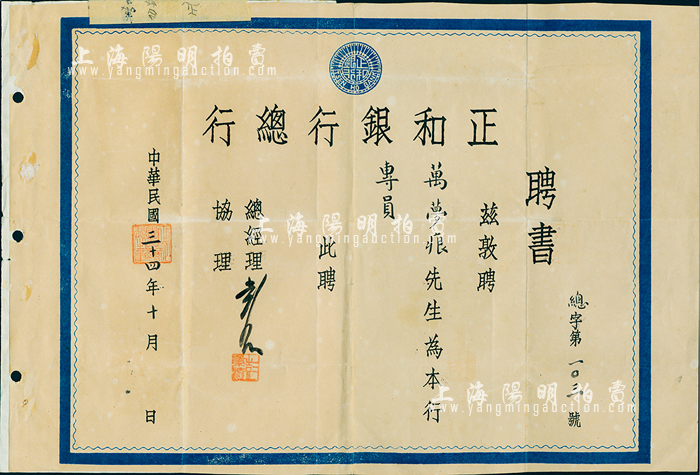 聘書
總字第一〇三號
茲敦聘
萬夢痕先生為本行
專員
此聘
正和銀行總行
總經理
協理
中華民國三十四年十月 日
上海陽明拍賣
www.yangmingauction.com
上海陽明拍賣
上海陽明拍賣
www.yangmingauction.com